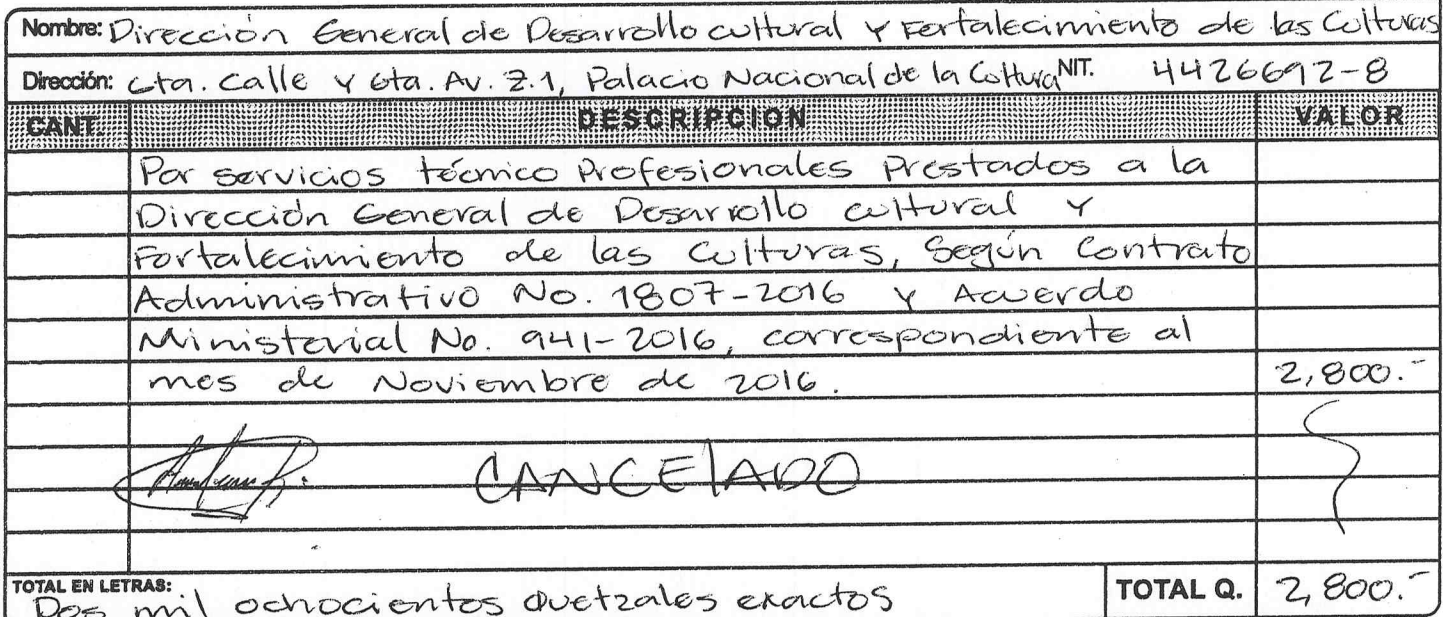 Nombre: Dirección General de Desarrollo cultural y Fortalecimiento de las Culturas
Dirección: 6ta. Calle y 6ta. Av. Z.1, Palacio Nacional de la Cultura NIT. 4426692-8
CANT. DESCRIPCION VALOR
Por servicios técnico Profesionales prestados a la
Dirección General de Desarrollo cultural y
Fortalecimiento de las Culturas, Según Contrato
Administrativo No. 1807-2016 y Acuerdo
Ministerial No. 941-2016, correspondiente al
mes de Noviembre de 2016. 2,800.-
CANCELADO
TOTAL EN LETRAS: Dos mil ochocientos quetzales exactos TOTAL Q. 2,800.-